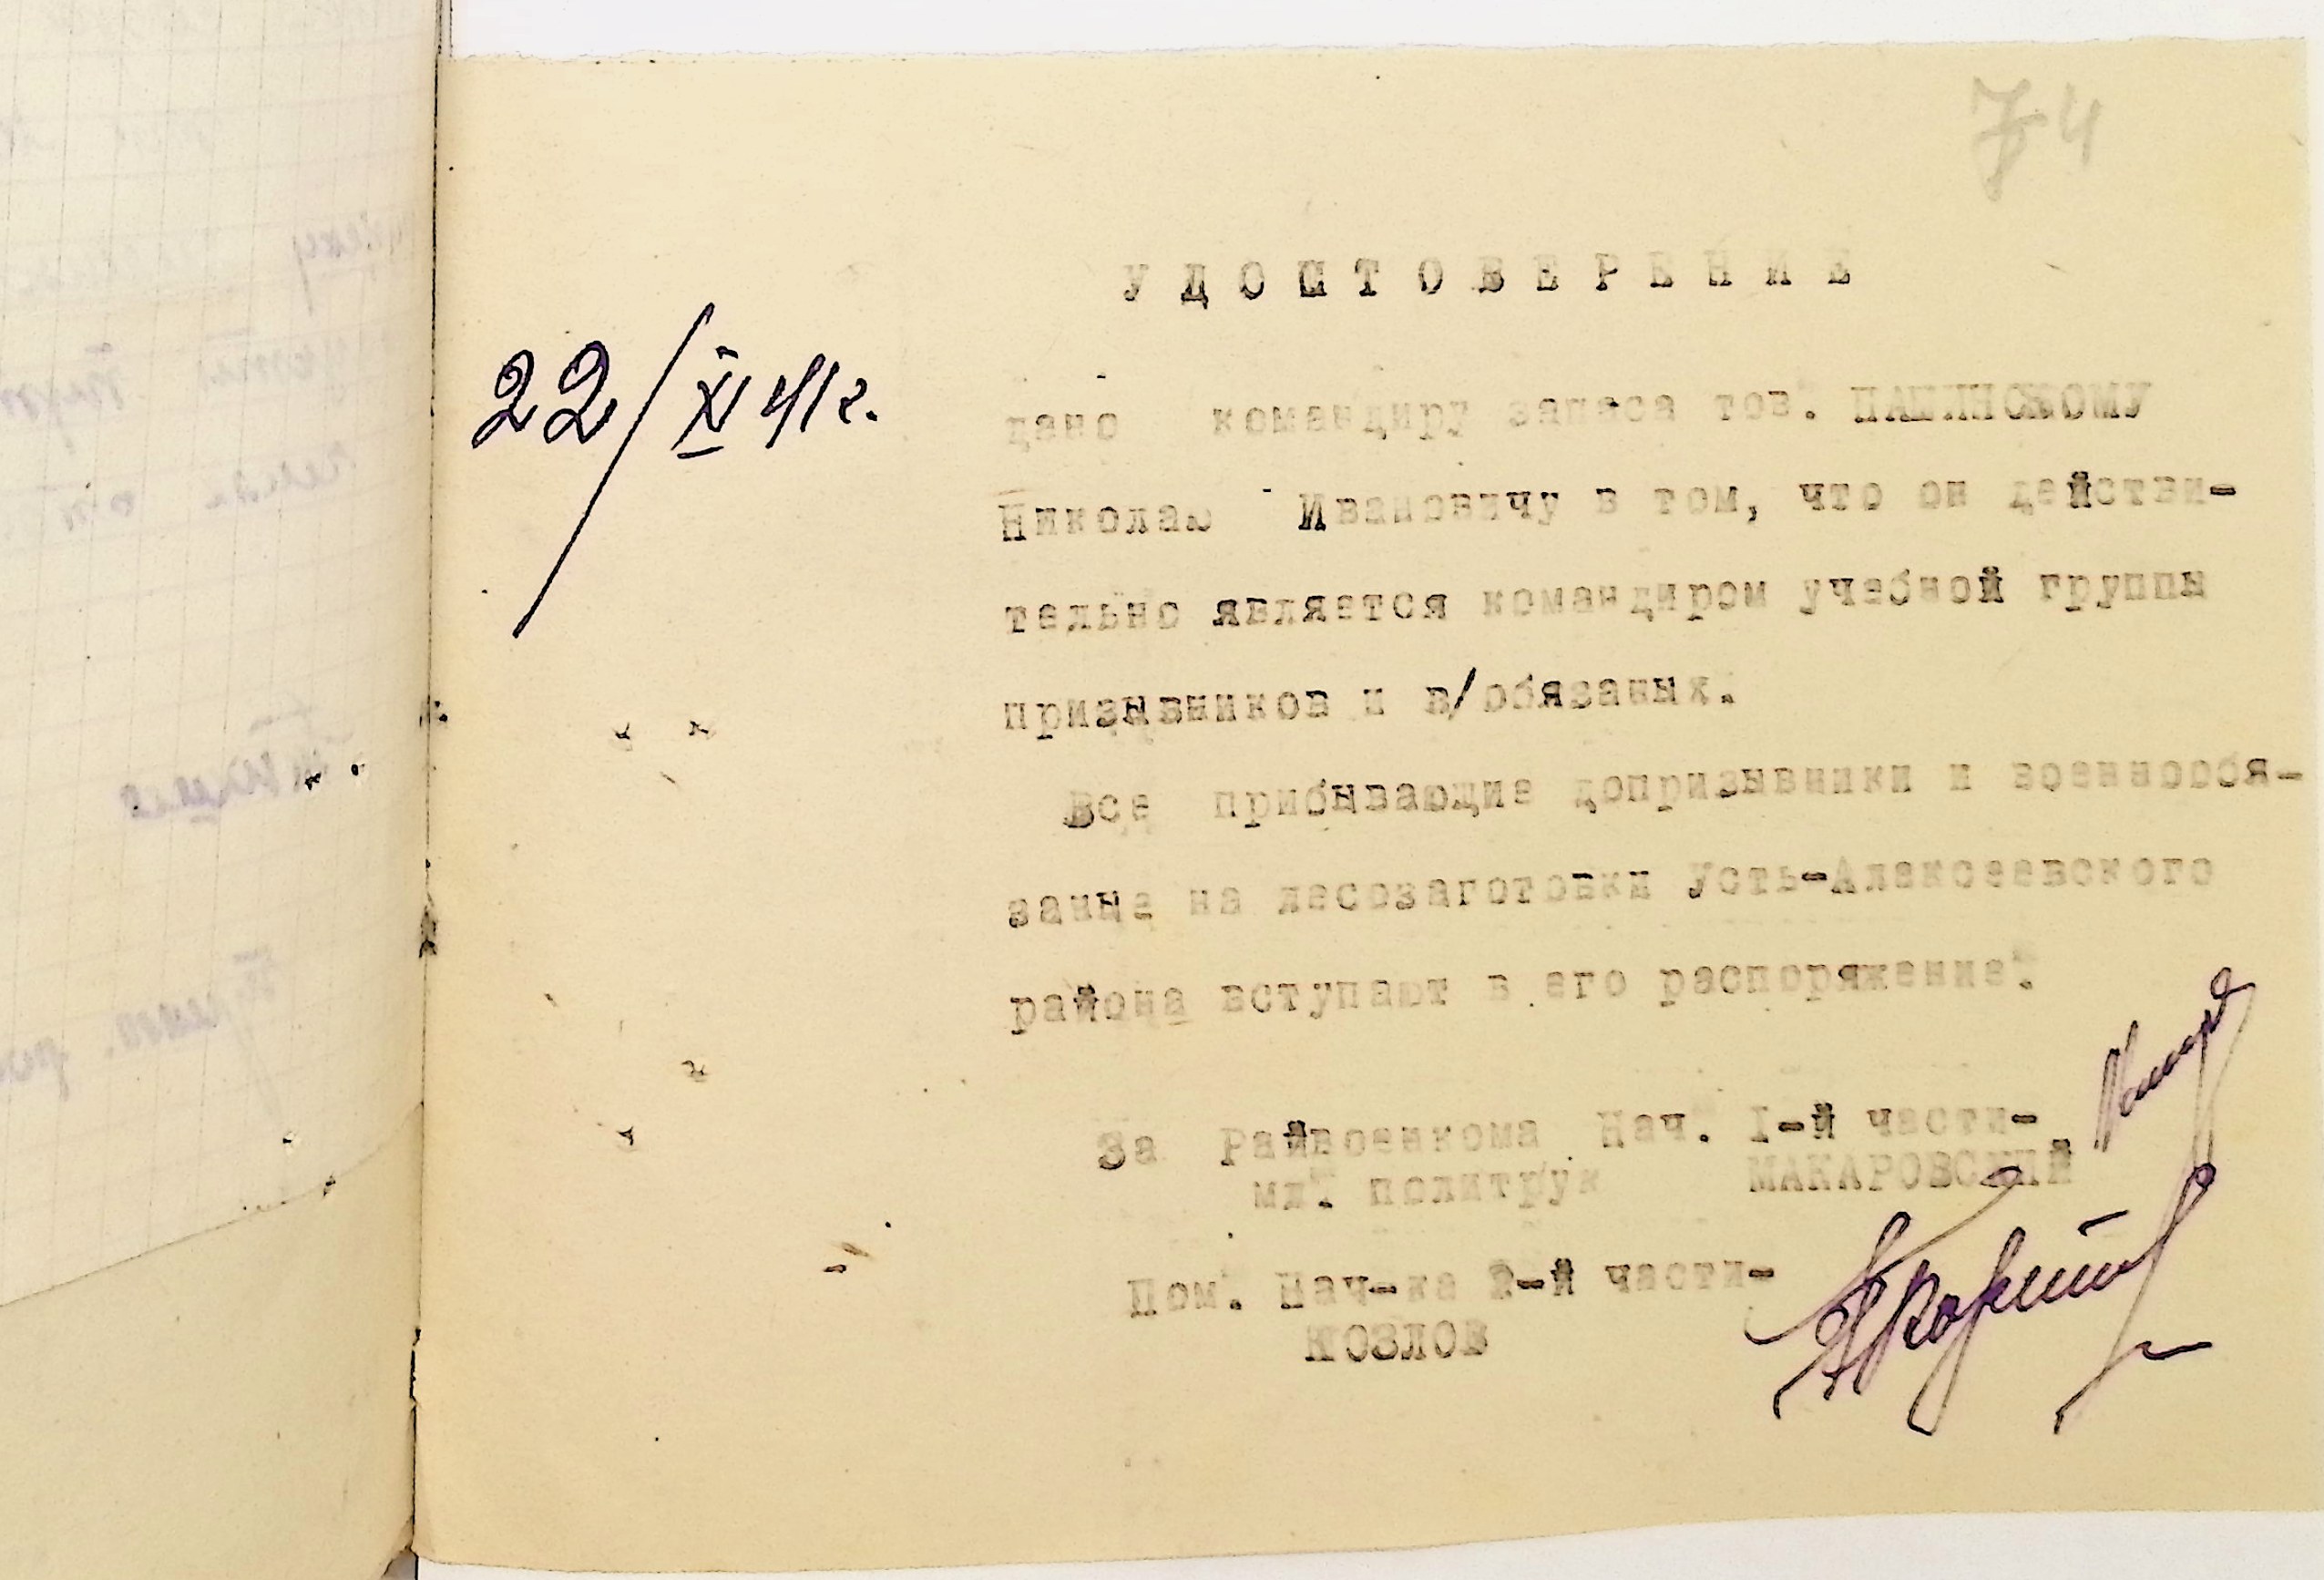 74
У Д О С Т О В Е Р Е Н И Е
22/XI 41г.
дано командиру запаса тов. ПАШИНСКОМУ
Николаю Ивановичу в том, что он действи-
тельно является командиром учебной группы
призывников и в/обязаных.
Все прибывающие допризывники и военнообя-
заные на лесозаготовки Усть-Алексеевского
района вступают в его распоряжение.
За Райвоенкома Нач. I-й части-
мл. политрук МАКАРОВСКИЙ
Пом. Нач-ка 2-й части-
КОЗЛОВ